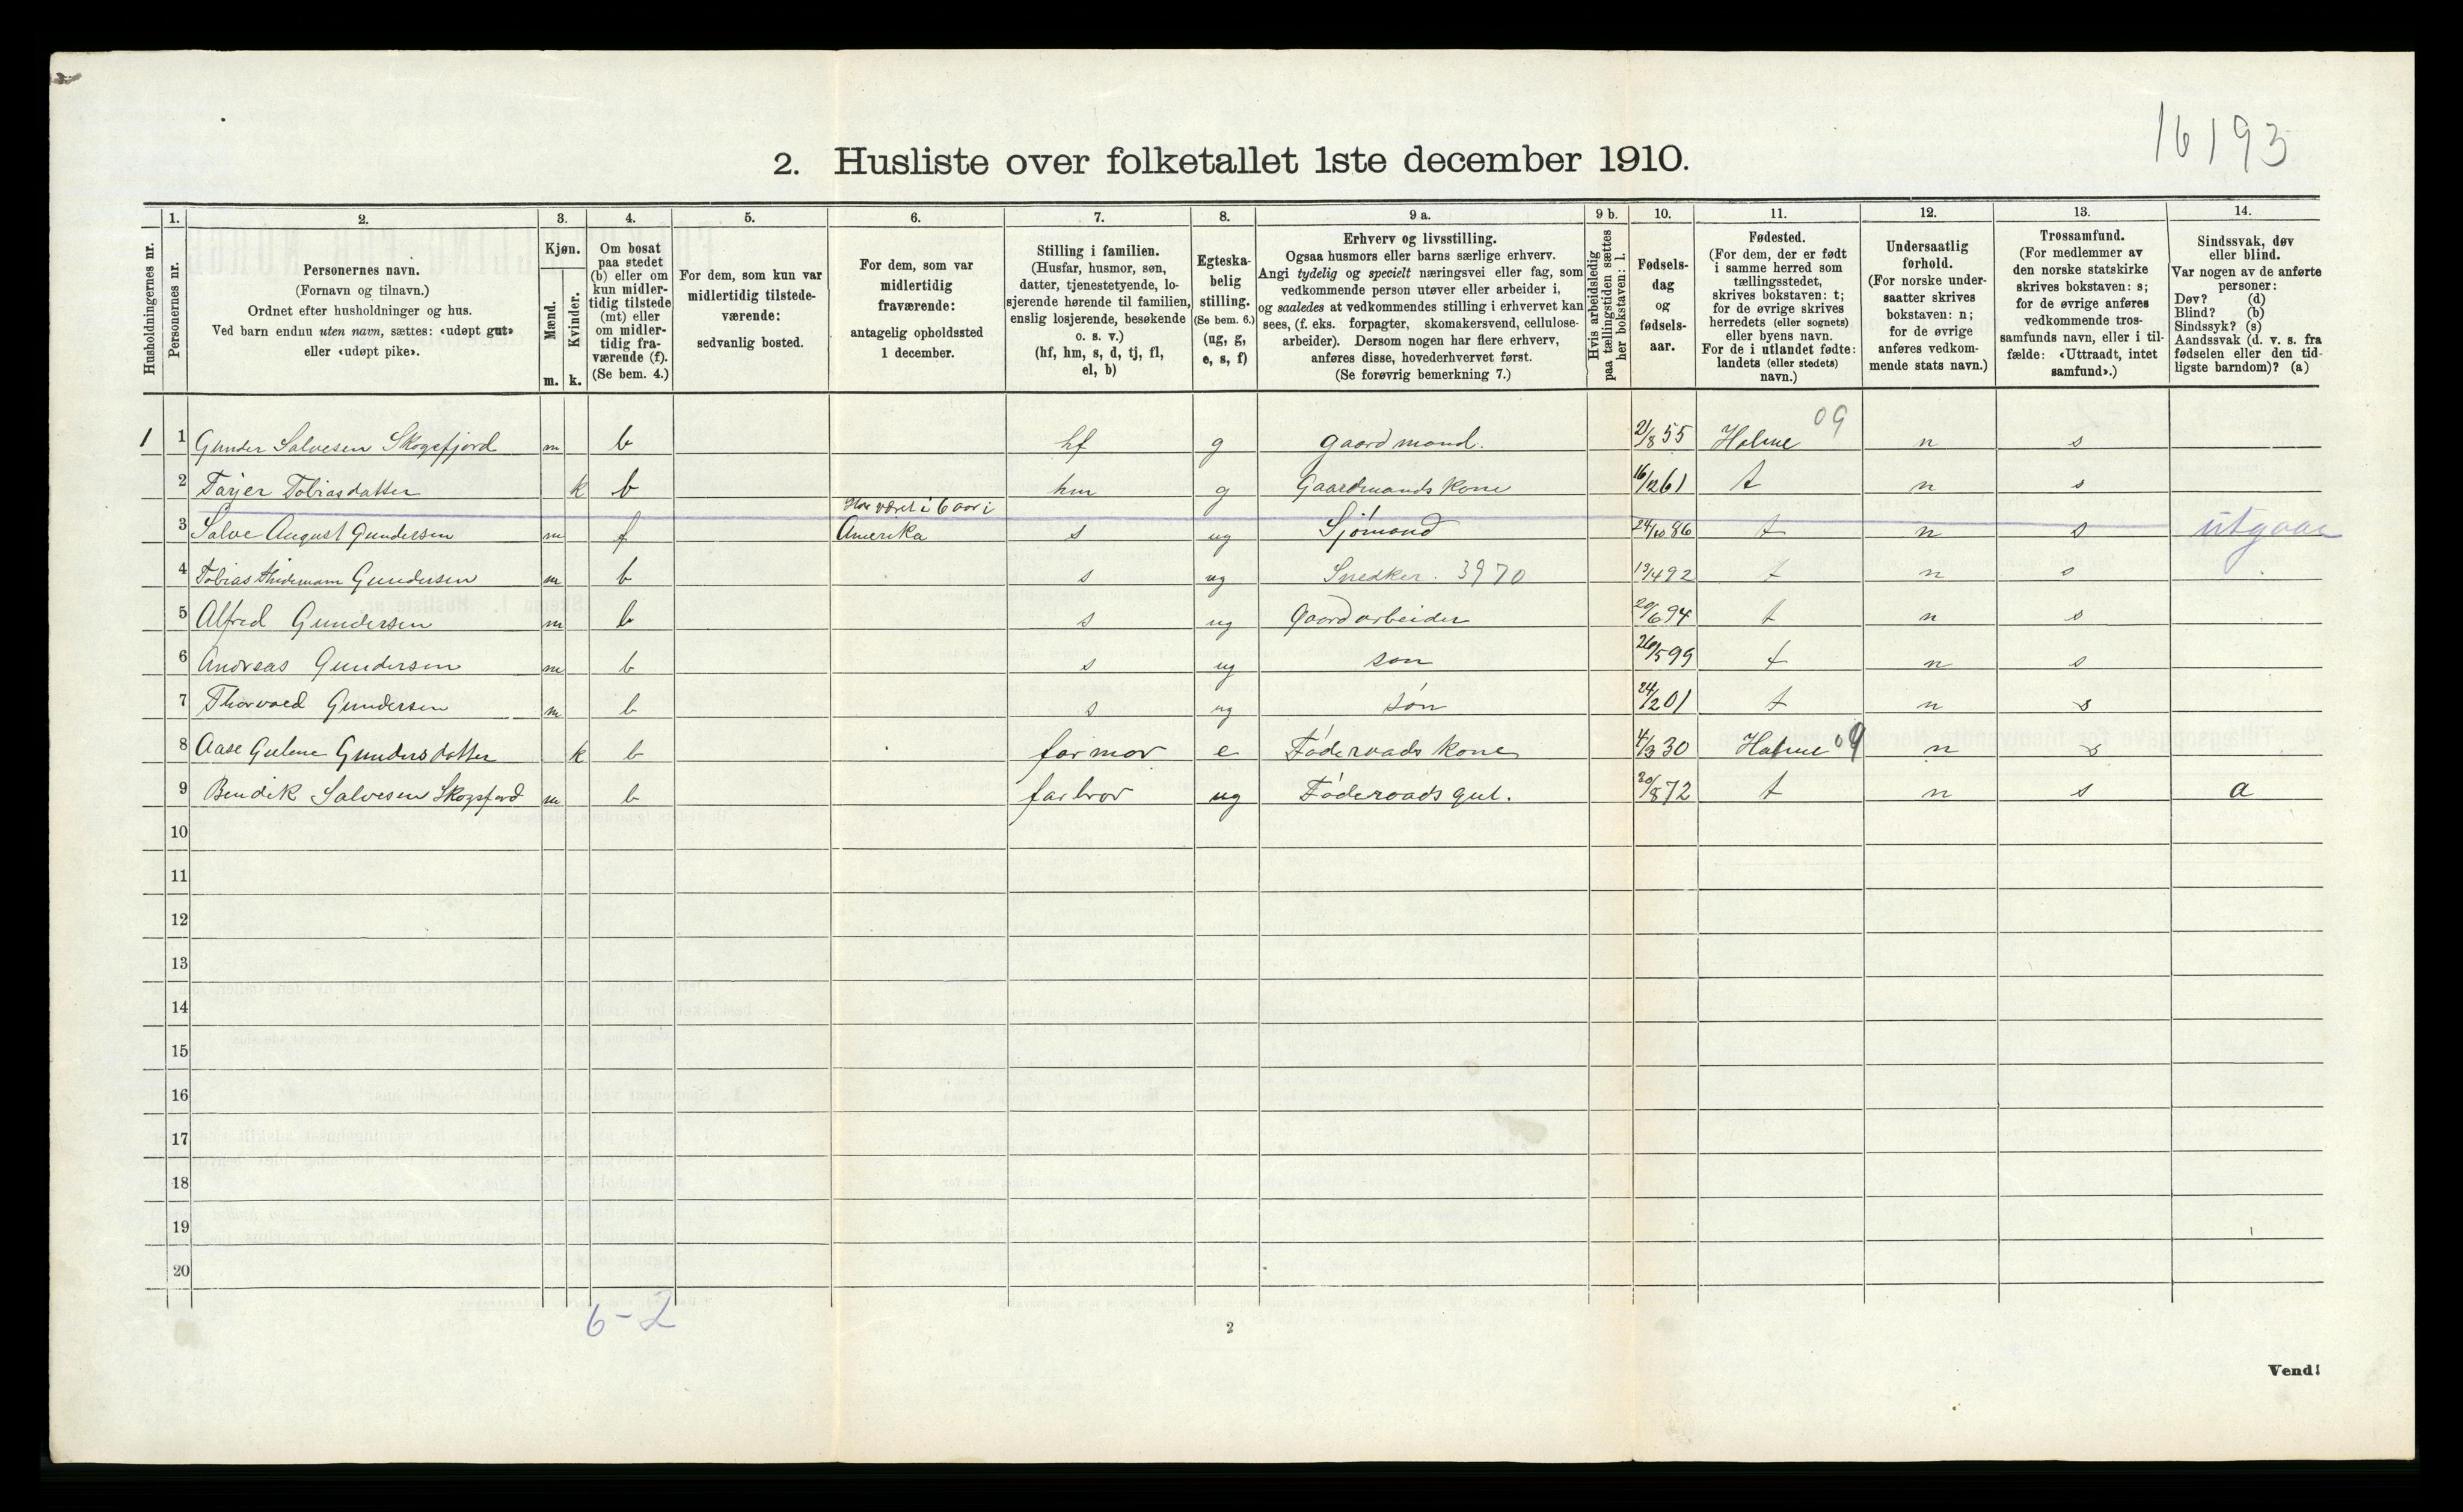 16193
2. Husliste over folketallet 1ste december 1910.
Husholdningernes nr.
1.
Personernes nr.
2.
Personernes navn.
(Fornavn og tilnavn.)
Ordnet efter husholdninger og hus.
Ved barn endnu uten navn, sættes: «udøpt gut»
eller «udøpt pike».
3.
Kjøn.
Mænd.
Kvinder.
m. k.
4.
Om bosat
paa stedet
(b) eller om
kun midler-
tidig tilstede
(mt) eller
om midler-
tidig fra-
værende (f).
(Se bem. 4.)
5.
For dem, som kun var
midlertidig tilstede-
værende:
sedvanlig bosted.
6.
For dem, som var
midlertidig
fraværende:
antagelig opholdssted
1 december.
7.
Stilling i familien.
(Husfar, husmor, søn,
datter, tjenestetyende, lo-
sjerende hørende til familien,
enslig losjerende, besøkende
o. s. v.)
(hf, hm, s, d, tj, fl,
el, b)
8.
Egteska-
belig
stilling.
(Se bem. 6.)
(ug, g,
e, s, f)
9 a.
Erhverv og livsstilling.
Ogsaa husmors eller barns særlige erhverv.
Angi tydelig og specielt næringsvei eller fag, som
vedkommende person utøver eller arbeider i,
og saaledes at vedkommendes stilling i erhvervet kan
sees, (f. eks. forpagter, skomakersvend, cellulose-
arbeider). Dersom nogen har flere erhverv,
anføres disse, hovederhvervet først.
(Se forøvrig bemerkning 7.)
9 b.
Hvis arbeidsledig
paa tællingstiden sættes
her bokstaven: l.
10.
Fødsels-
dag
og
fødsels-
aar.
11.
Fødested.
(For dem, der er født
i samme herred som
tællingsstedet,
skrives bokstaven: t;
for de øvrige skrives
herredets (eller sognets)
eller byens navn.
For de i utlandet fødte:
landets (eller stedets)
navn.)
12.
Undersaatlig
forhold.
(For norske under-
saatter skrives
bokstaven: n;
for de øvrige
anføres vedkom-
mende stats navn.)
13.
Trossamfund.
(For medlemmer av
den norske statskirke
skrives bokstaven: s;
for de øvrige anføres
vedkommende tros-
samfunds navn, eller i til-
fælde: «Uttraadt, intet
samfund».)
14.
Sindssvak, døv
eller blind.
Var nogen av de anførte
personer:
Døv? (d)
Blind? (b)
Sindssyk? (s)
Aandssvak (d. v. s. fra
fødselen eller den tid-
ligste barndom)? (a)
1 1 Gunder Salvesen Skogsfjord m b hf g gaardmand. 21/8 55 Holme 09 n s
2 Tarjer Tobiasdatter k b hm g Gaardmands kone 16/12 61 t n s
3 Salve August Gundersen m f Har været i 6 aar i
Amerika s ug Sjømand 24/10 86 t n s utgaar
4 Tobias Gundersen m b s ug Snedker. 3970 13/4 92 t n s
5 Alfred Gundersen m b s ug Gaardarbeider 20/6 94 t n s
6 Andreas Gundersen m b s ug søn 26/5 99 t n s
7 Thorvald Gundersen m b s ug søn 24/2 01 t n s
8 Aase Gundersdatter k b farmor e Føderaads kone 4/3 30 Holme 09 n s
9 Bendik Salvesen Skogsfjord m b farbror ug Føderaads gut. 30/8 72 t n s a
10
11
12
13
14
15
16
17
18
19
20
6-2
2
Vend!